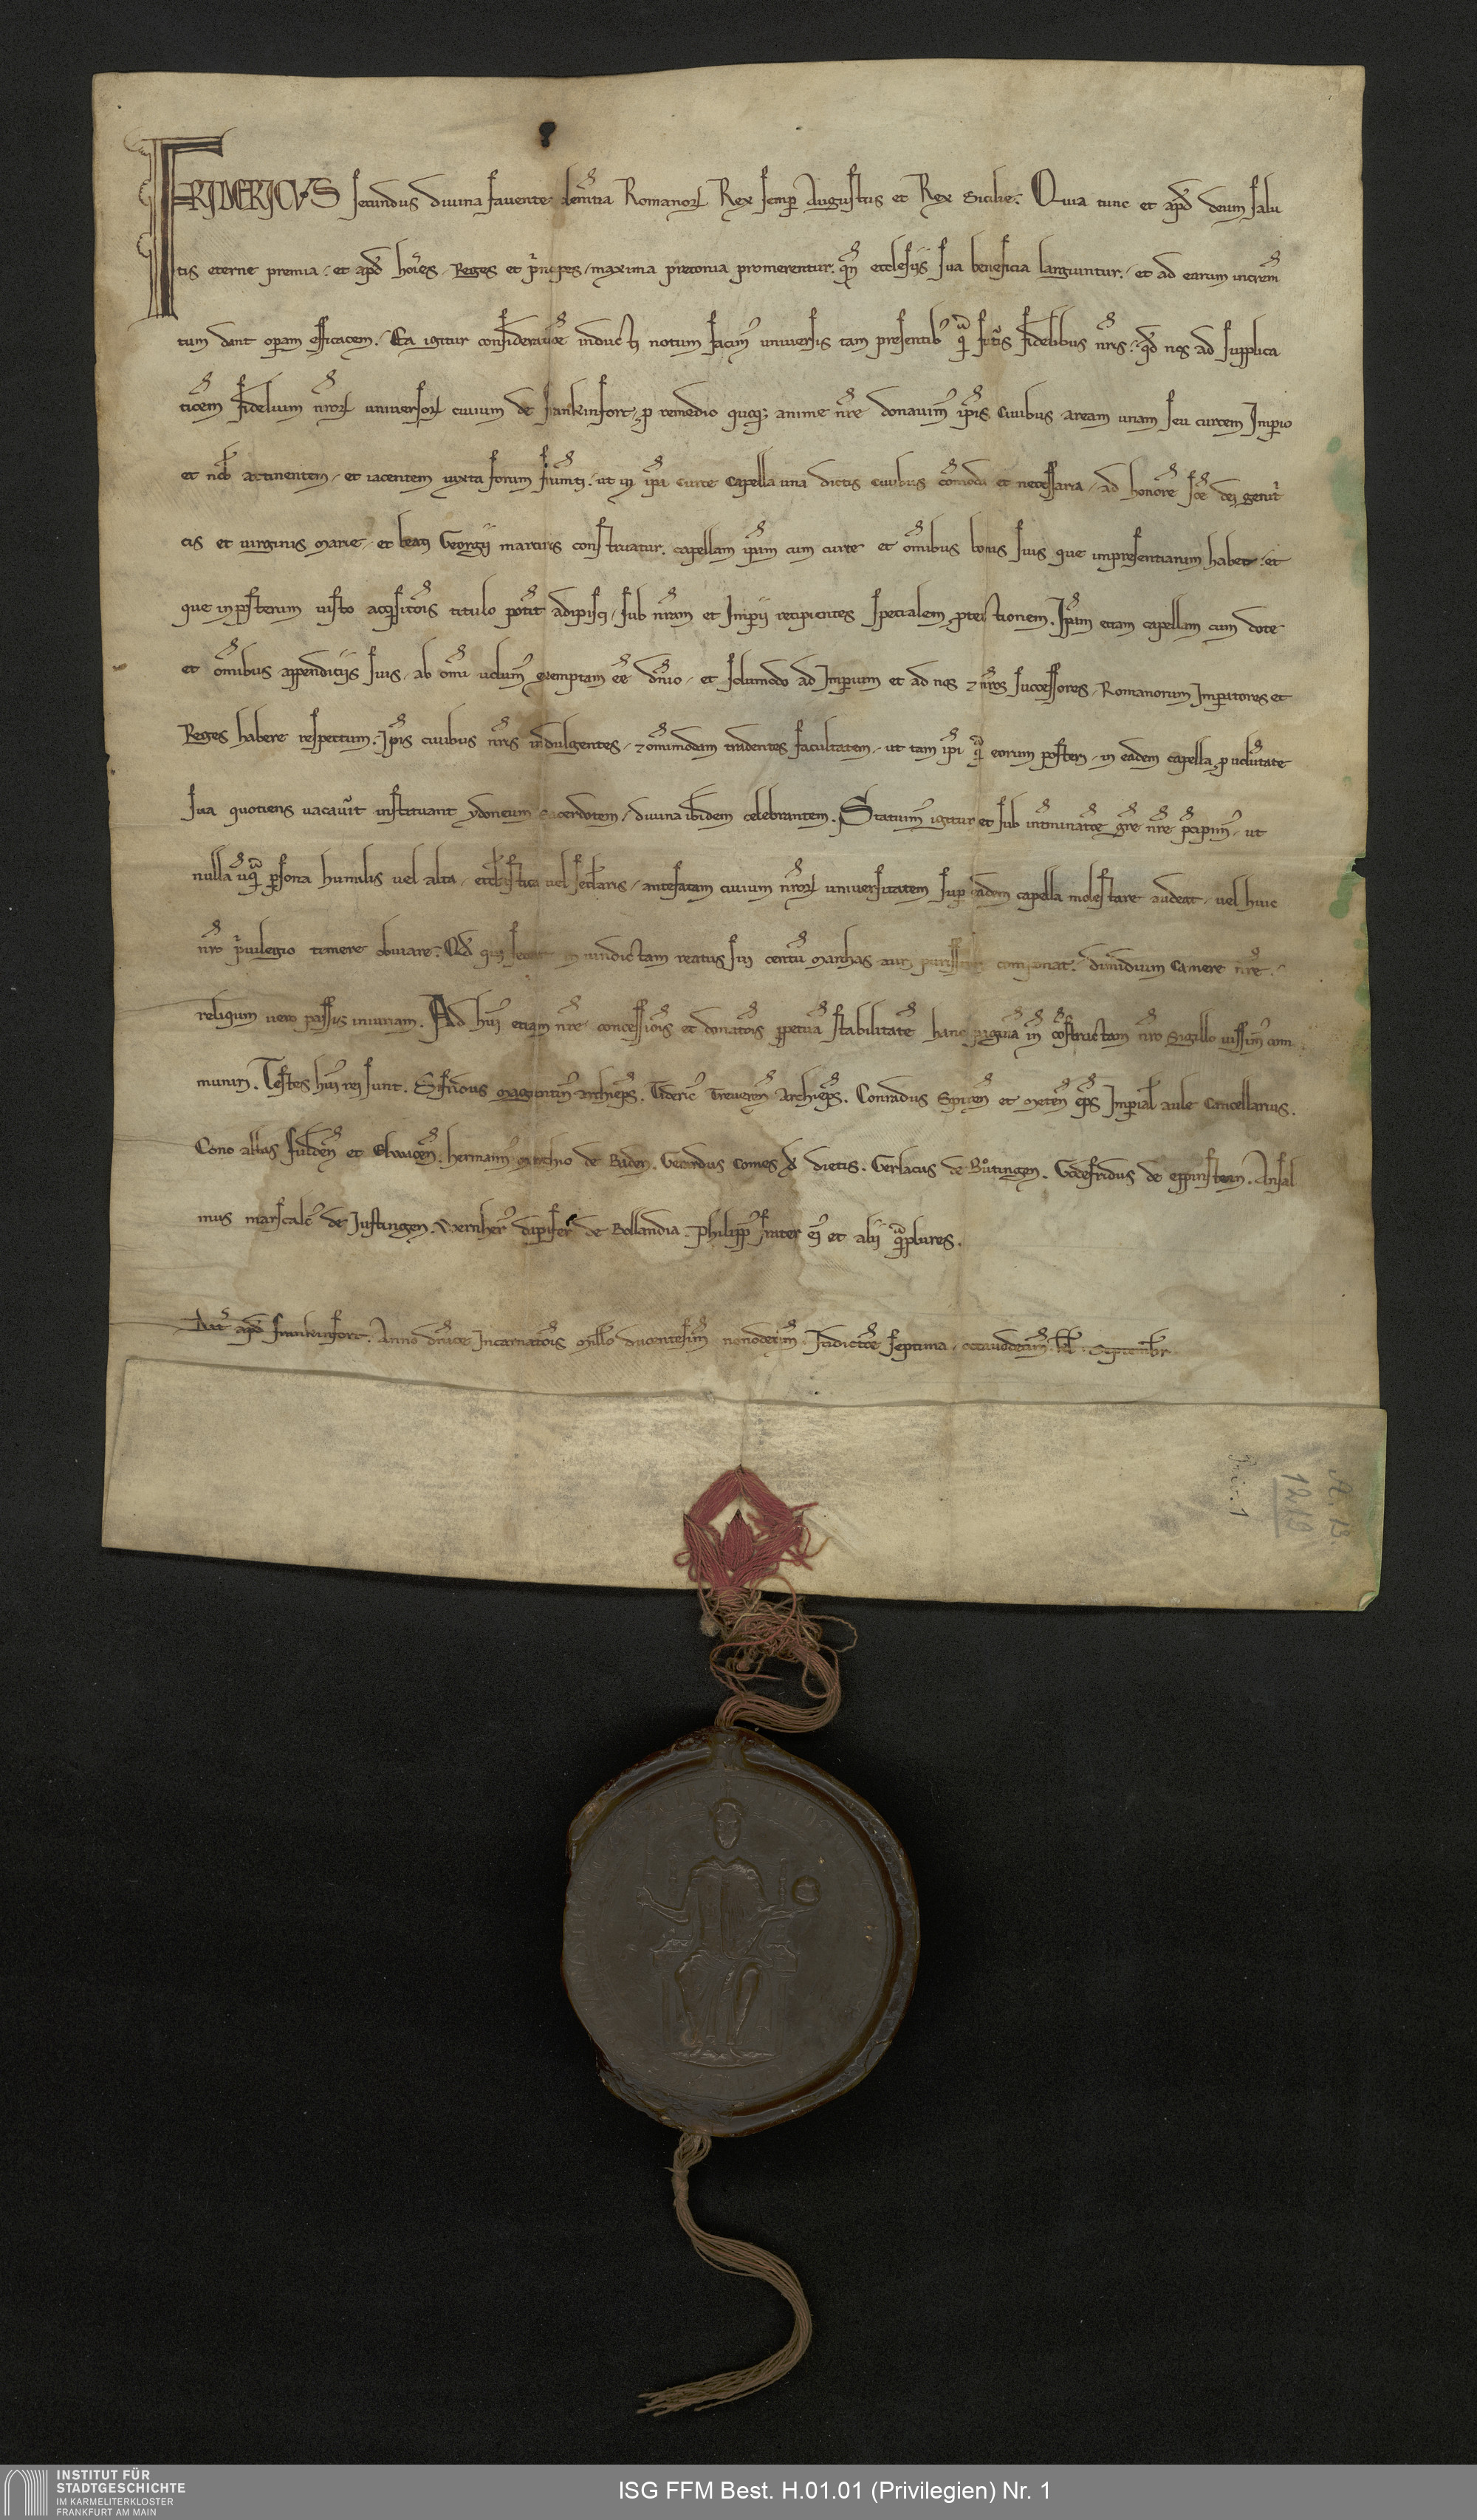 FRIDERICVS secundus diuina fauente clem̄tia Romanoꝝ Rex semp̄ Augustus et Rex Sicilie. Quia tunc et apd̄ deum salu
tis eterne premia. et apd̄ hoīes Reges et p̄ncipes maxima preconia promerentur. qn̄ ecclesijs sua beneficia largiuntur. et ad earum increm̄
tum dant operam efficacem. Ea igitur consideratiōe inducti notum facimꝰ uniuersis tam presentibꝰ q̄ futīs fidelibus nr̄is. qd̄ nos ad supplica
tiōem fidelium nr̄oꝝ uniuersoꝝ ciuium de frankinfort p̱ remedio quoqꝫ anime nr̄e donauimꝰ ip̄is ciuibus aream unam seu curtem Imp̱io
et nob̄ attinentem et iacentem iuxta forum frum̄ti. ut in ip̄a curte capella una dictis ciuibus cōmoda et necessaria ad honorē sc̄e dei genit̓
cis et uirginis Marie. et beati Georgij martiris construatur. capellam ip̄am cum curte et om̄ibus bonis suis que inpresentiarum habet. et
que inposterum iusto acq̓sitōis titulo pot̓it adipisci sub nr̄am et Imp̱ij recipientes specialem ꝓtectionem. Ip̄am etiam capellam cum dote
et om̄ibus appendicijs suis ab om̄i uolumꝰ exemptam eē dn̄io. et solumodo ad Imp̱ium et ad nos ⁊ nr̄os successores Romanorum Imp̱atores et
Reges habere respectum. Ip̄is ciuibus nr̄is indulgentes ⁊ om̄imodam tradentes facultatem. ut tam ip̄i q̄ eorum posteri in eadem capella p̱ uolūtate
sua quotiens uacau̓it instituant ydoneum sacerdotem diuina ibidem celebrantem. Statuimꝰ igitur et sub int̓minatōe gr̄e nr̄e p̄cipimꝰ ut
nulla ūq̄ p̱sona humilis uel alta. eccl̄astica uel secl̄aris antefatam ciuium nr̄oꝝ uniuersitatem sup̱ eadem capella molestare audeat. uel huic
nr̄o p̓uilegio temere obuiare. Qd̄ qui fecerit in uindictam reatus sui centū Marchas auri purissimi componat. dimidium camere nr̄e.
reliqum uero passis iniuriam. Ad huiꝰ etiam nr̄e concessiōis et donatōis p̱petuā stabilitatē hanc paginā in̄ cōstructam nr̄o Sigillo iussimꝰ com
muniri. Testes huiꝰ rei sunt. Sifridus Magontinꝰ archiep̄s. Tidericꝰ Treueren̄ Archiep̄s. Conradus Spiren̄ et Meten̄ ep̄s Imp̱ial̄ aule Cancellarius.
Cono abbas fulden̄ et Elwacen̄. hermannꝰ marchio de Baden. Gerardus Comes de dietis. Gerlacus de Bůtingen. Godefridus de eppinstein. Ansel
mus marscalcꝰ de Justingen. Wernherꝰ dapifer de Bollandia. Philippꝰ frater eiꝰ et alij q̄plures.
Actꝰ apd̄ frankinfort. Anno dn̄ice Incarnatōis Mill̄o ducentesim̄ nonodecim̄ Indictōe septima octauodecim̄ kl̄ Septembr
A. 13.
1219
Priv. 1
INSTITUT FÜR
STADTGESCHICHTE
IM KARMELITERKLOSTER
FRANKFURT AM MAIN
ISG FFM Best. H.01.01 (Privilegien) Nr. 1